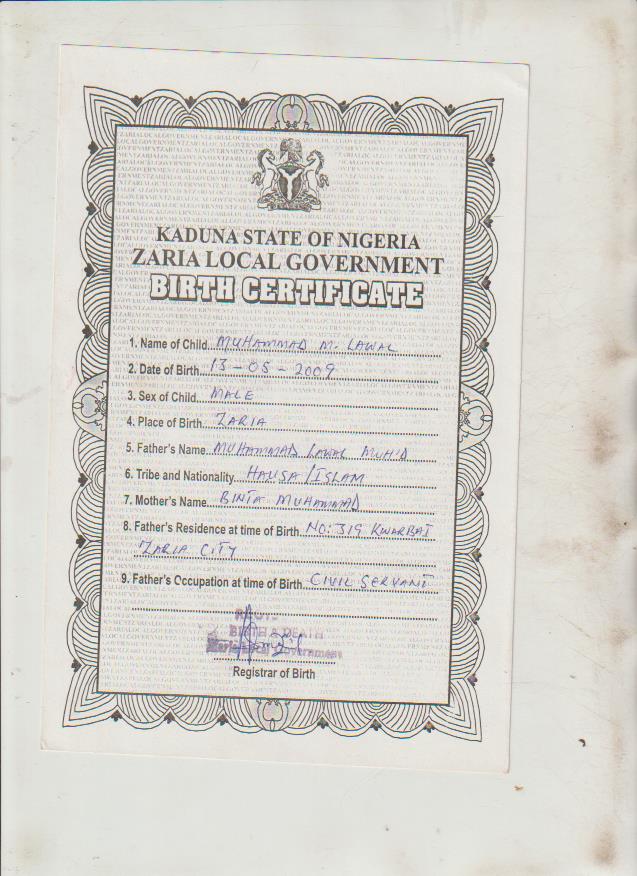 KADUNA STATE OF NIGERIA
ZARIA LOCAL GOVERNMENT
BIRTH CERTIFICATE
1. Name of Child MUHAMMAD M. LAWAL
2. Date of Birth 13-05-2009
3. Sex of Child MALE
4. Place of Birth ZARIA
5. Father's Name MUHAMMAD LAWAL MUH'D
6. Tribe and Nationality HAUSA/ISLAM
7. Mother's Name BINTA MUHAMMAD
8. Father's Residence at time of Birth NO: 319 KWARBAI
ZARIA CITY
9. Father's Occupation at time of Birth CIVIL SERVANT
BIRTH & DEATH
Registrar of Birth